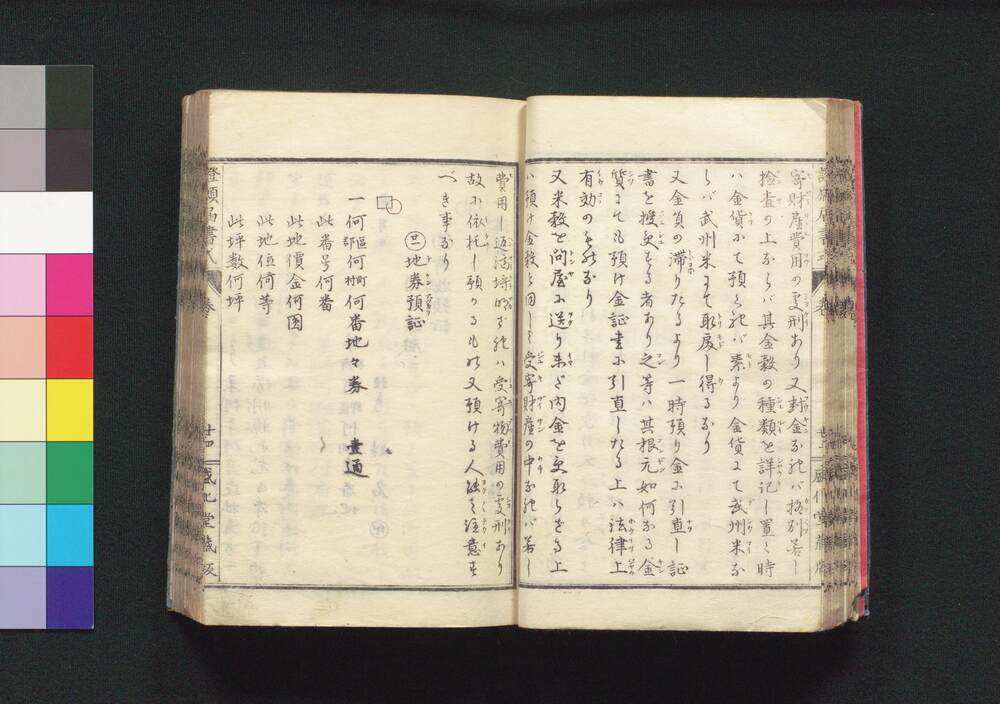 寄財産費用の受刑あり又封金なれバ格別若し
捡査の上ならバ其金穀の種類を詳記し置く時
ハ金貨にて預くれバ素より金貨にて武州米な
らバ武州米にて取戻し得るなり
又金負の滞りたるより一時預り金に引直し証
書を授受する者あり之等ハ其根元如何なる金
質にても預け金証書に引直したる上ハ法律上
有効のものなり
又米穀を問屋に送り未だ内金を受取らざる上
ハ預け金穀と同しく受寄財産の中なれバ若し
費用し返済
ハ受寄物費用の受刑あり
故に依托し預かるもの又預ける人
注意す
べき事なり
地券預証
一何区何町何番地々券 壹通
郡 村
此番号何番
此地價金何圓
此地位何等
此坪数何坪
證願届書式
卷
廿四
盛化堂藏版